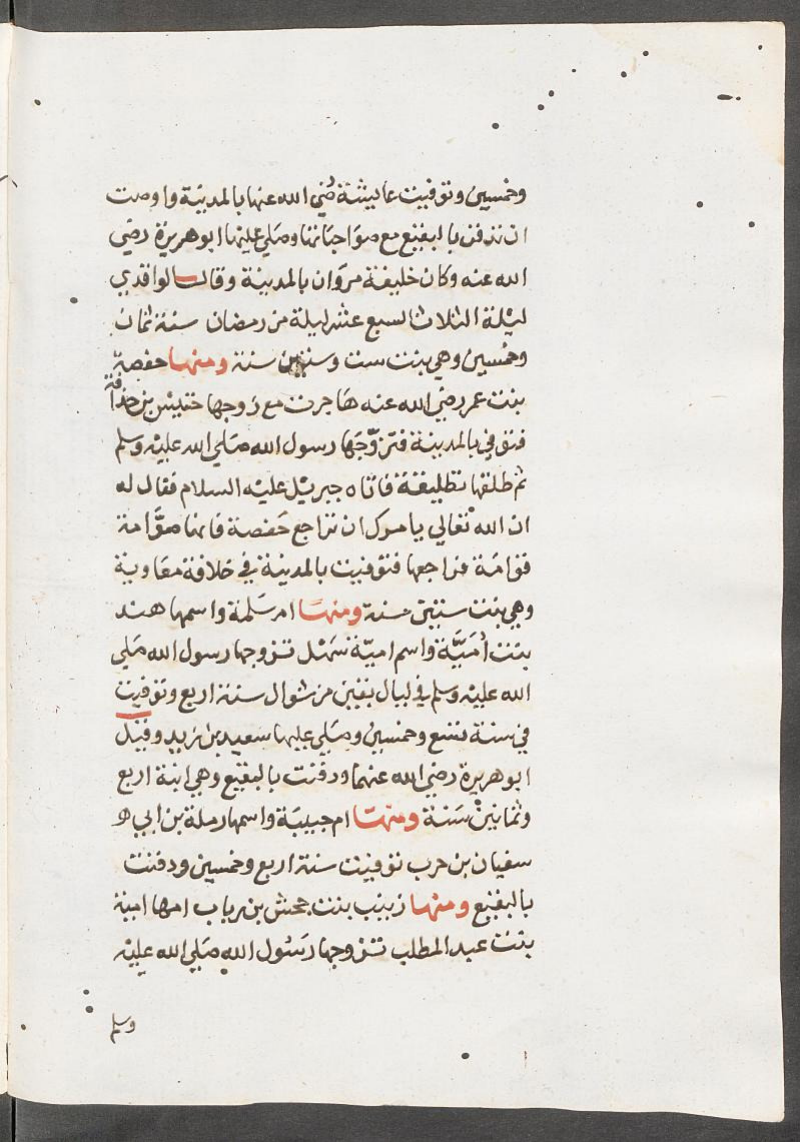 وخمسين وتوفيت عايشة رضي الله عنها بالمدينة واوصت
ان تدفن بالبقيع مع صواحباتها وصلي عليها ابو هريرة رضي
الله عنه وكان خليفة مروان بالمدينة وقال الواقدي
ليلة الثلاث لسبع عشر ليلة من رمضان سنة ثمان
وخمسين وهي بنت ست وستين سنة ومنها حفصة
بنت عمر رضي الله عنه هاجرت مع زوجها خنيس بن حذافة
فتوفي بالمدينة فتزوجها رسول الله صلي الله عليه وسلم
ثم طلقها تطليقة فاتاه جبريل عليه السلام فقال له
ان الله تعالي يامرك ان تراجع حفصة فانها صوامة
قوامة فراجعها فتوفيت بالمدينة في خلافة معاوية
وهي بنت ستين سنة ومنها ام سلمة واسمها هند
بنت أمية واسم امية سهل تزوجها رسول الله صلي
الله عليه وسلم في ليال بقين من شوال سنة اربع وتوفيت
في سنة تسع وخمسين وصلي عليها سعيد بن زيد وقيل
ابو هريرة رضي الله عنهما ودفنت بالبقيع وهي ابنة اربع
وثمانين سنة ومنها ام حبيبة واسمها رملة بن ابي
سفيان بن حرب توفيت سنة اربع وخمسين ودفنت
بالبقيع ومنها زينب بنت جحش بن رياب امها امية
بنت عبد المطلب تزوجها رسول الله صلي الله عليه
وسلم